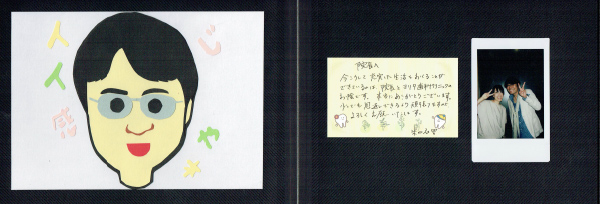 イイ感じ
やき
院長へ
今こうして充実した生活をおくることが
できているのは、院長とヨリタ歯科クリニックの
お陰です。本当にありがとうございます。
少しでも恩返しできるよう頑張りますので
よろしくお願いします。